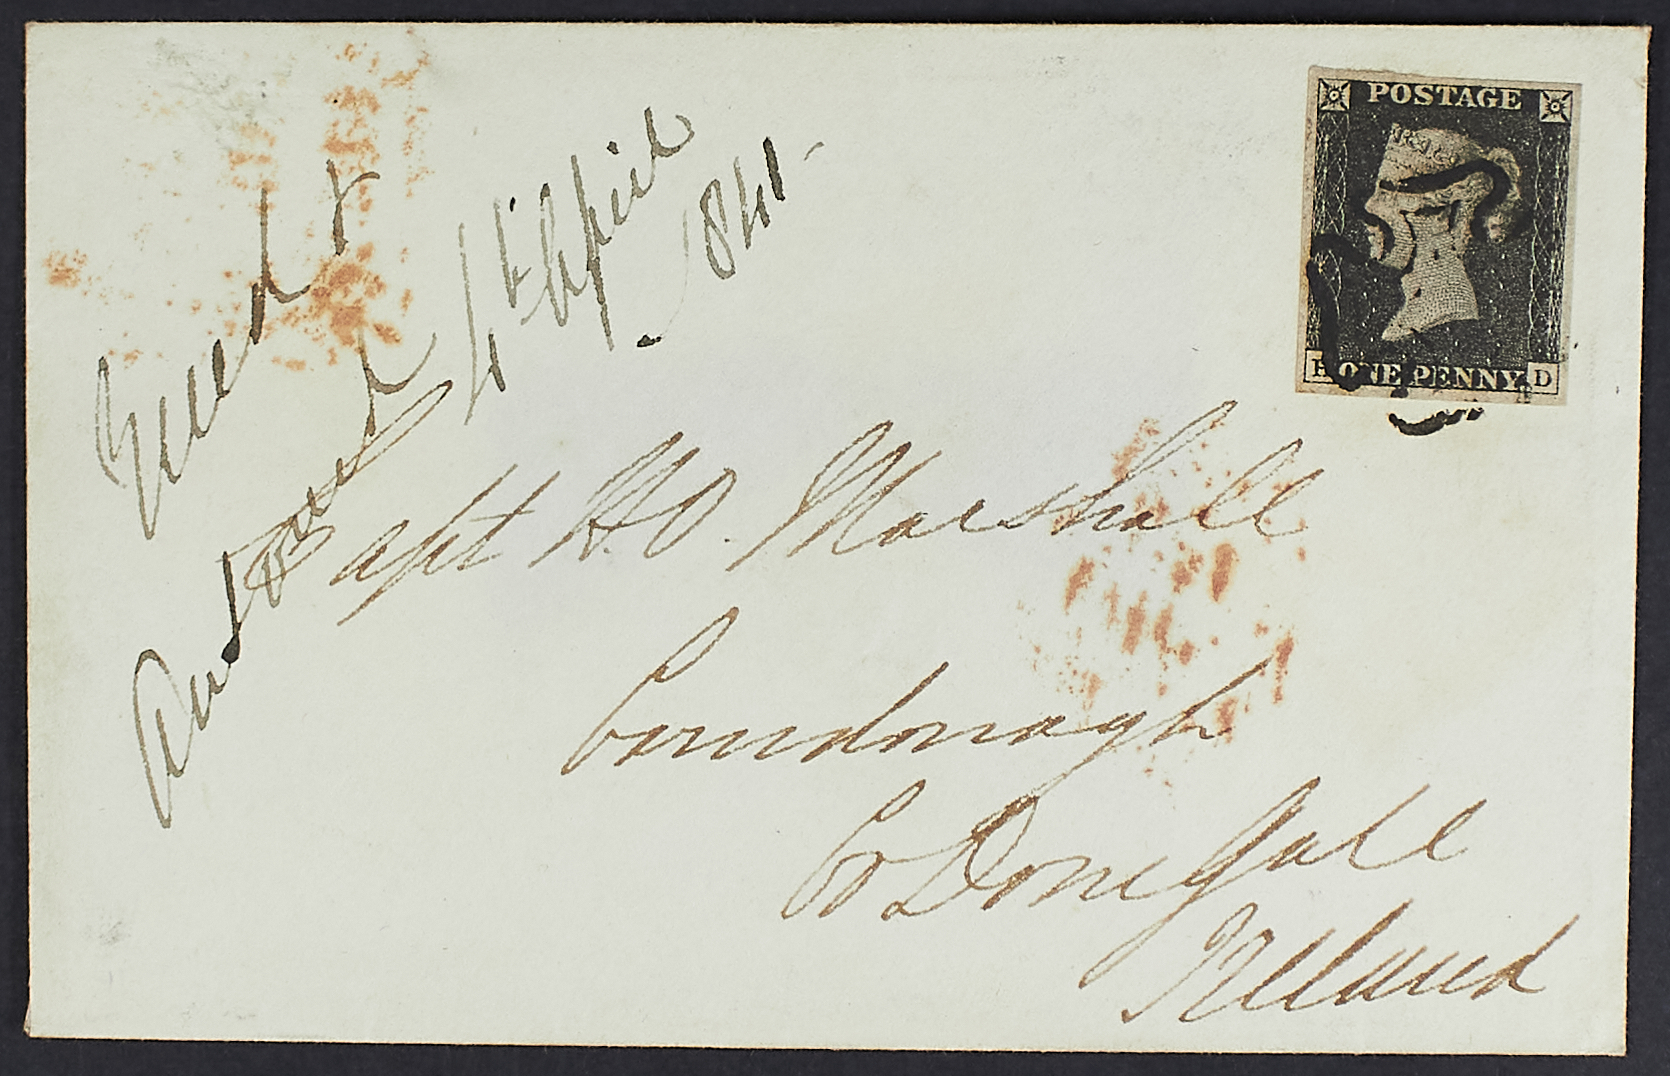 POSTAGE
ONE PENNY
D
4t April
1841
Capt H.O. Marshall
Carndonagh
Co DoneGall
Ireland